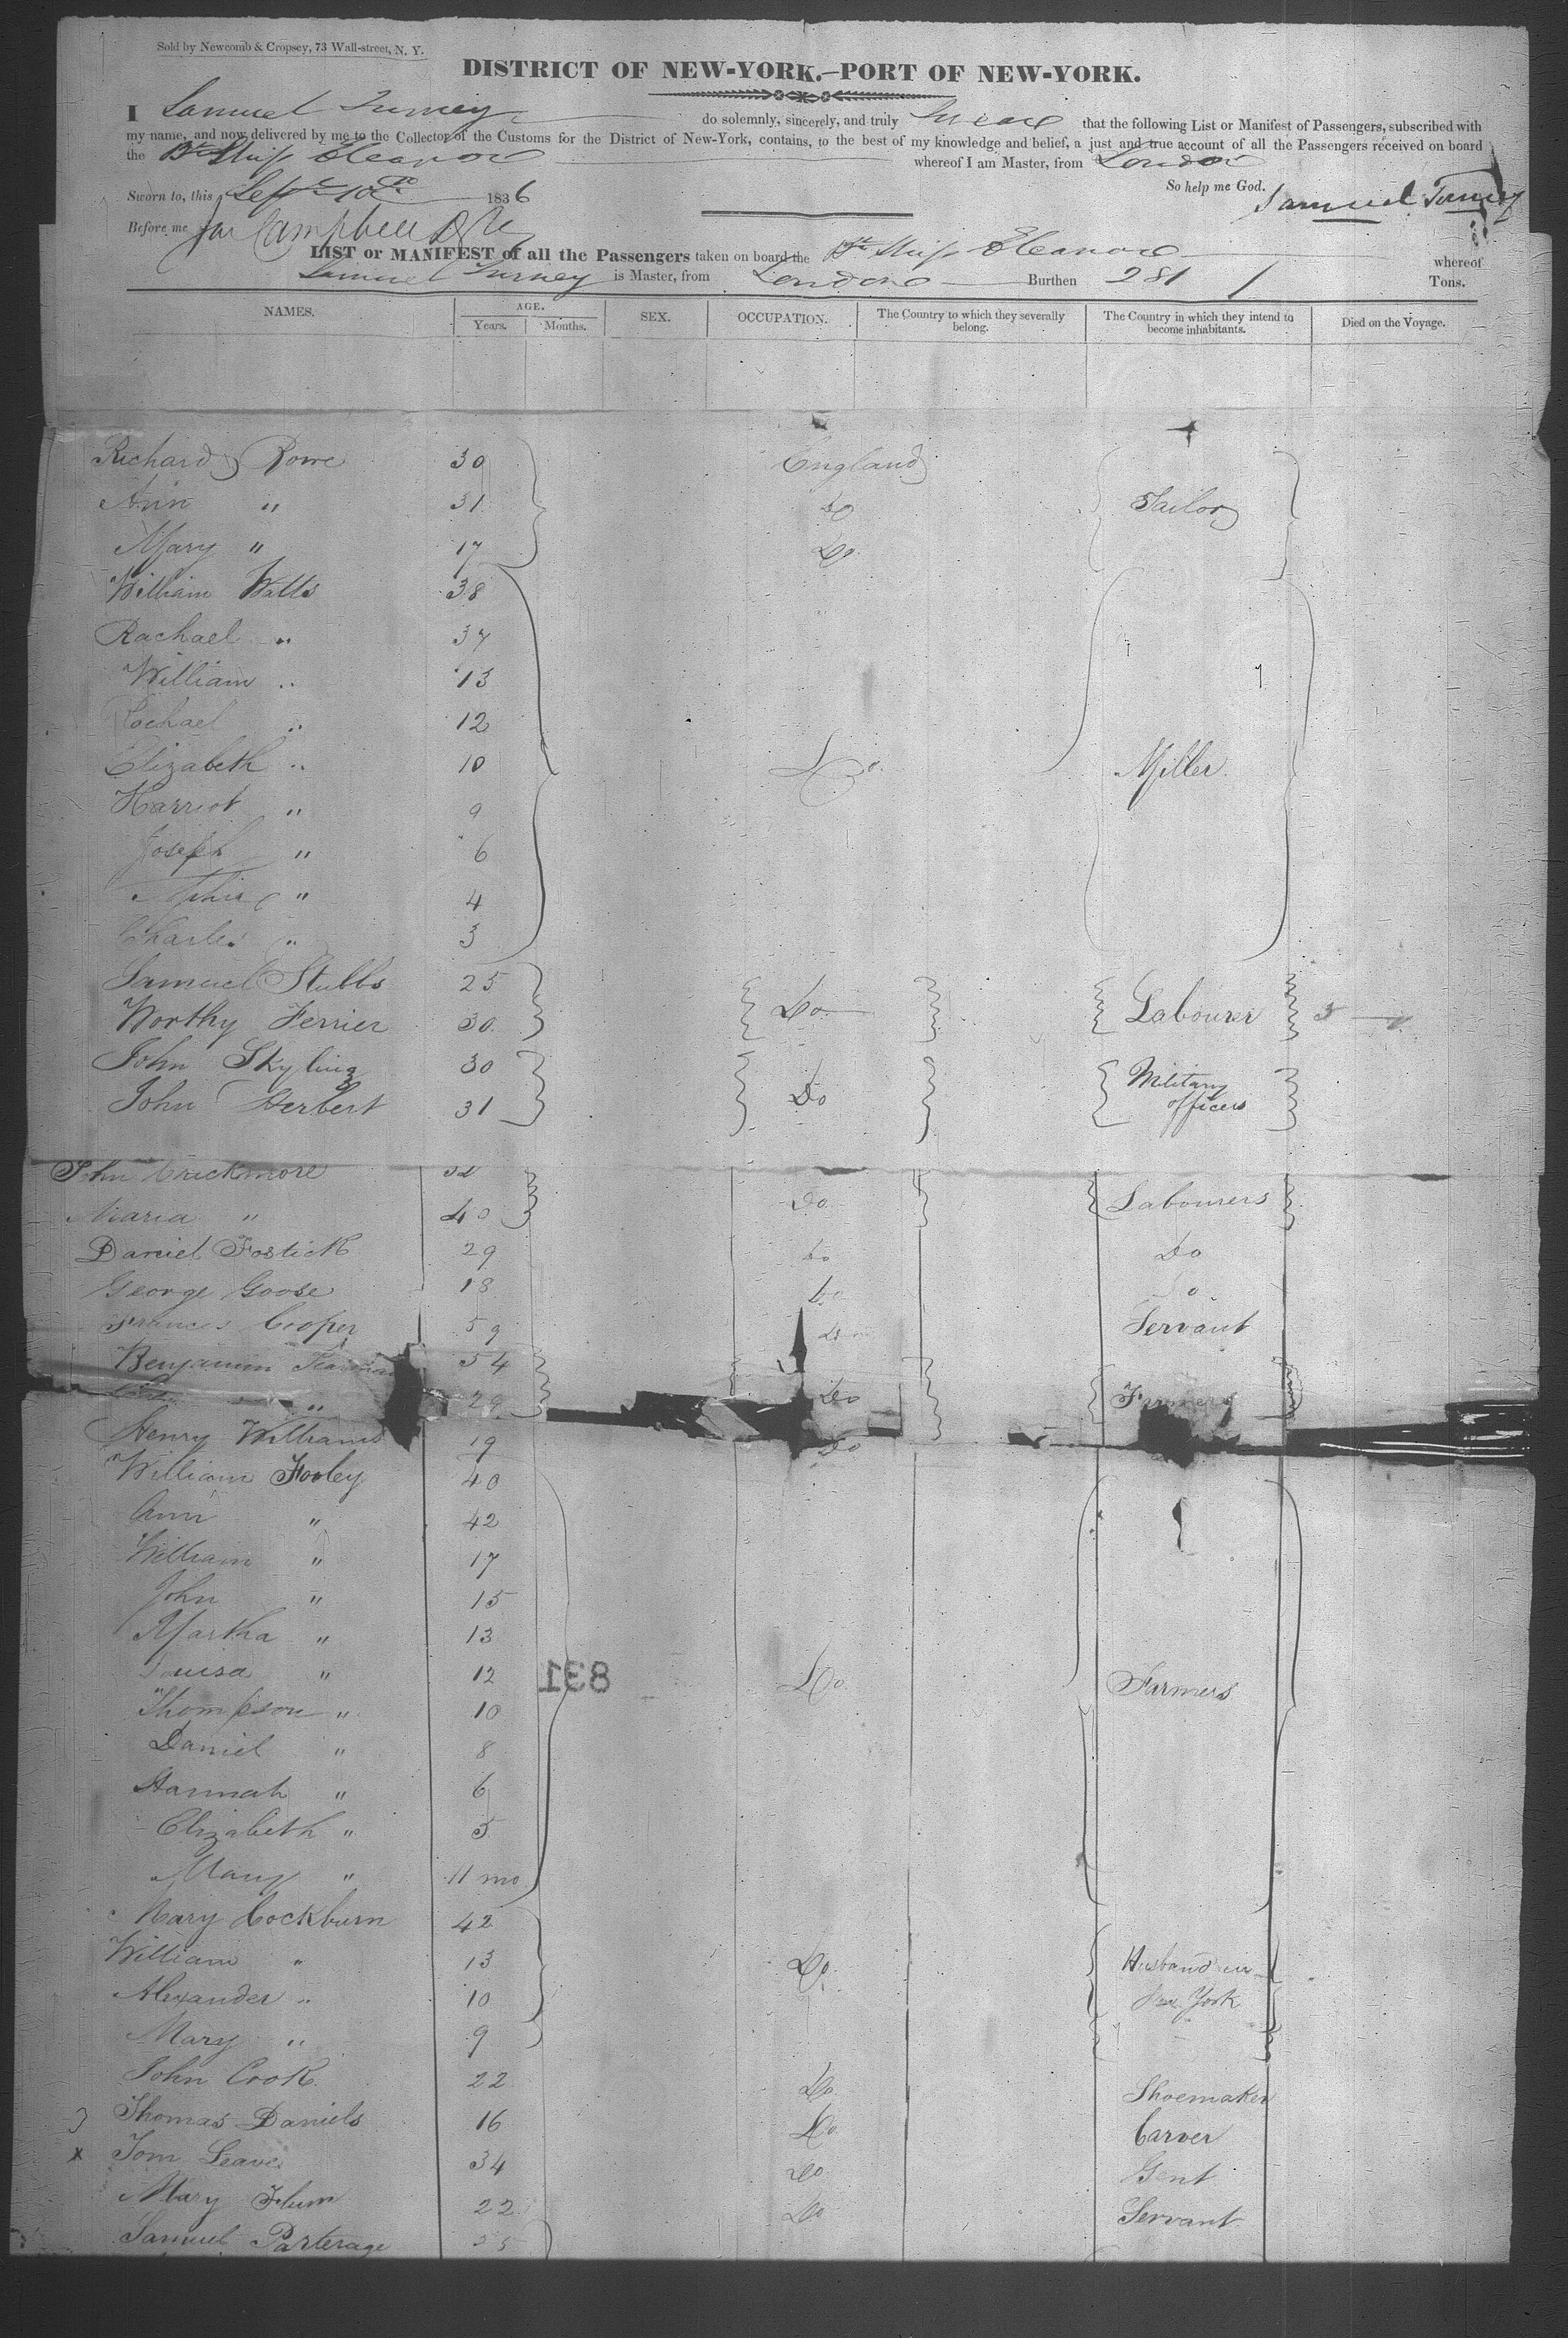 Sold by Newcomb & Cropsey, 73 Wall-street, N. Y.
DISTRICT OF NEW-YORK.—PORT OF NEW-YORK.
I Samuel Turney do solemnly, sincerely, and truly Swear that the following List or Manifest of Passengers, subscribed with
my name, and now delivered by me to the Collector of the Customs for the District of New-York, contains, to the best of my knowledge and belief, a just and true account of all the Passengers received on board
the Br Ship Eleanor whereof I am Master, from London
So help me God.
Sworn to, this Sept 10th 1836 Samuel Turney
Before me Campbell
LIST or MANIFEST of all the Passengers taken on board the Br Ship Eleanor whereof
Samuel Turney is Master, from London Burthen 281 Tons.
NAMES. AGE. SEX. OCCUPATION. The Country to which they severally belong. The Country in which they intend to become inhabitants. Died on the Voyage.
Years. Months.
Richard Rowe 30 England
Ann " 31 Do Tailor
Mary " 17 Do
William Watts 38
Rachael " 37
William " 13
Rachael " 12
Elizabeth " 10 Do Miller
Harriot " 9
Joseph " 6
" 4
Charles " 3
Samuel Stubbs 25
Worthy Ferrier 30 Do Labourer
John Skyling 30
John Herbert 31 Do Military officers
John Crickmore
Maria " 40 Do Labourers
Daniel Fostick 29 Do Do
George Goose 18 Do Do
Frances Cooper 59 Do Servant
Benjamin 54
" 29 Do Farmers
Henry Williams 19 Do
William Fooley 40
Ann " 42
William " 17
John " 15
Martha " 13
Louisa " 12 831 Do Farmers
Thompson " 10
Daniel " 8
Hannah " 6
Elizabeth " 5
Mary " 11 mo
Mary Cockburn 42
William " 13 Do Husband in
Alexander " 10 New York
Mary " 9
John Cook 22 Do Shoemaker
Thomas Daniels 16 Do Carver
x Tom Leave 34 Do Gent
Mary Flum 22 Do Servant
Samuel Parterage